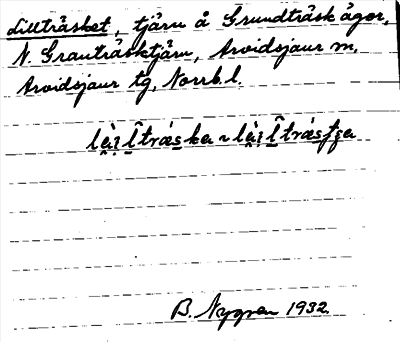 Lillträsket, tjärn å Grundträsk ägor,
N. Granträsktjärn, Arvidsjaur m.
Arvidsjaur tg, Norrb. l.
B. Nygren 1932.